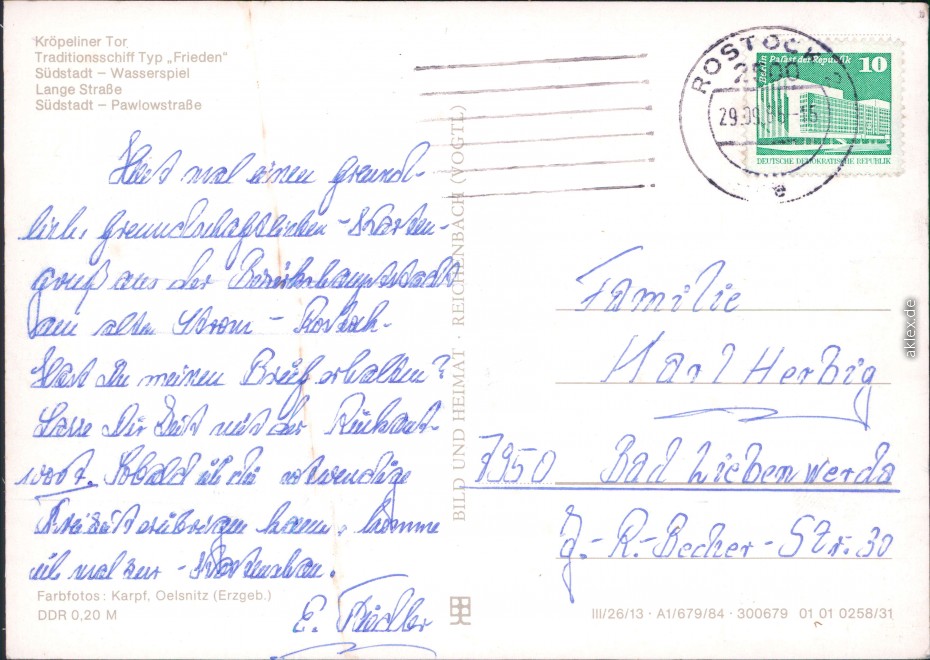 Kröpeliner Tor
Traditionsschiff Typ „Frieden"
Südstadt – Wasserspiel
Lange Straße
Südstadt – Pawlowstraße
ROSTOCK
2500
Berlin Palast der Republik 10
DEUTSCHE DEMOKRATISCHE REPUBLIK
mal einen freund-
lich. freundschaftlichen - Karten-
gruß aus der Bezirkshauptstadt
am alten Strom - Rostock.
Hast Du meinen Brief erhalten?
Lasse Dir Zeit mit der Rückant-
wort. Sobald ich die notwendige
Freizeit erübrigen kann, komme
ich mal zur
E.
BILD UND HEIMAT · REICHENBACH (VOGTL)
Familie
Karl Herbig
7950 Bad Liebenwerda
J.-R.-Becher-Str. 30
Farbfotos: Karpf, Oelsnitz (Erzgeb.)
DDR 0,20 M
III/26/13 · A1/679/84 · 300679 01 01 0258/31
aklex.de